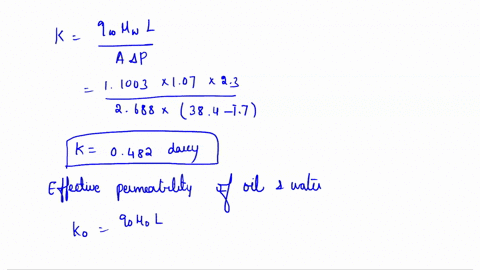 K = q_w μ_w L / A ΔP
= 1.1003 × 1.07 × 2.3 / 2.688 × (38.4 - 1.7)
K = 0.482 darcy
Effective permeability of oil & water
K_o = q_o μ_o L